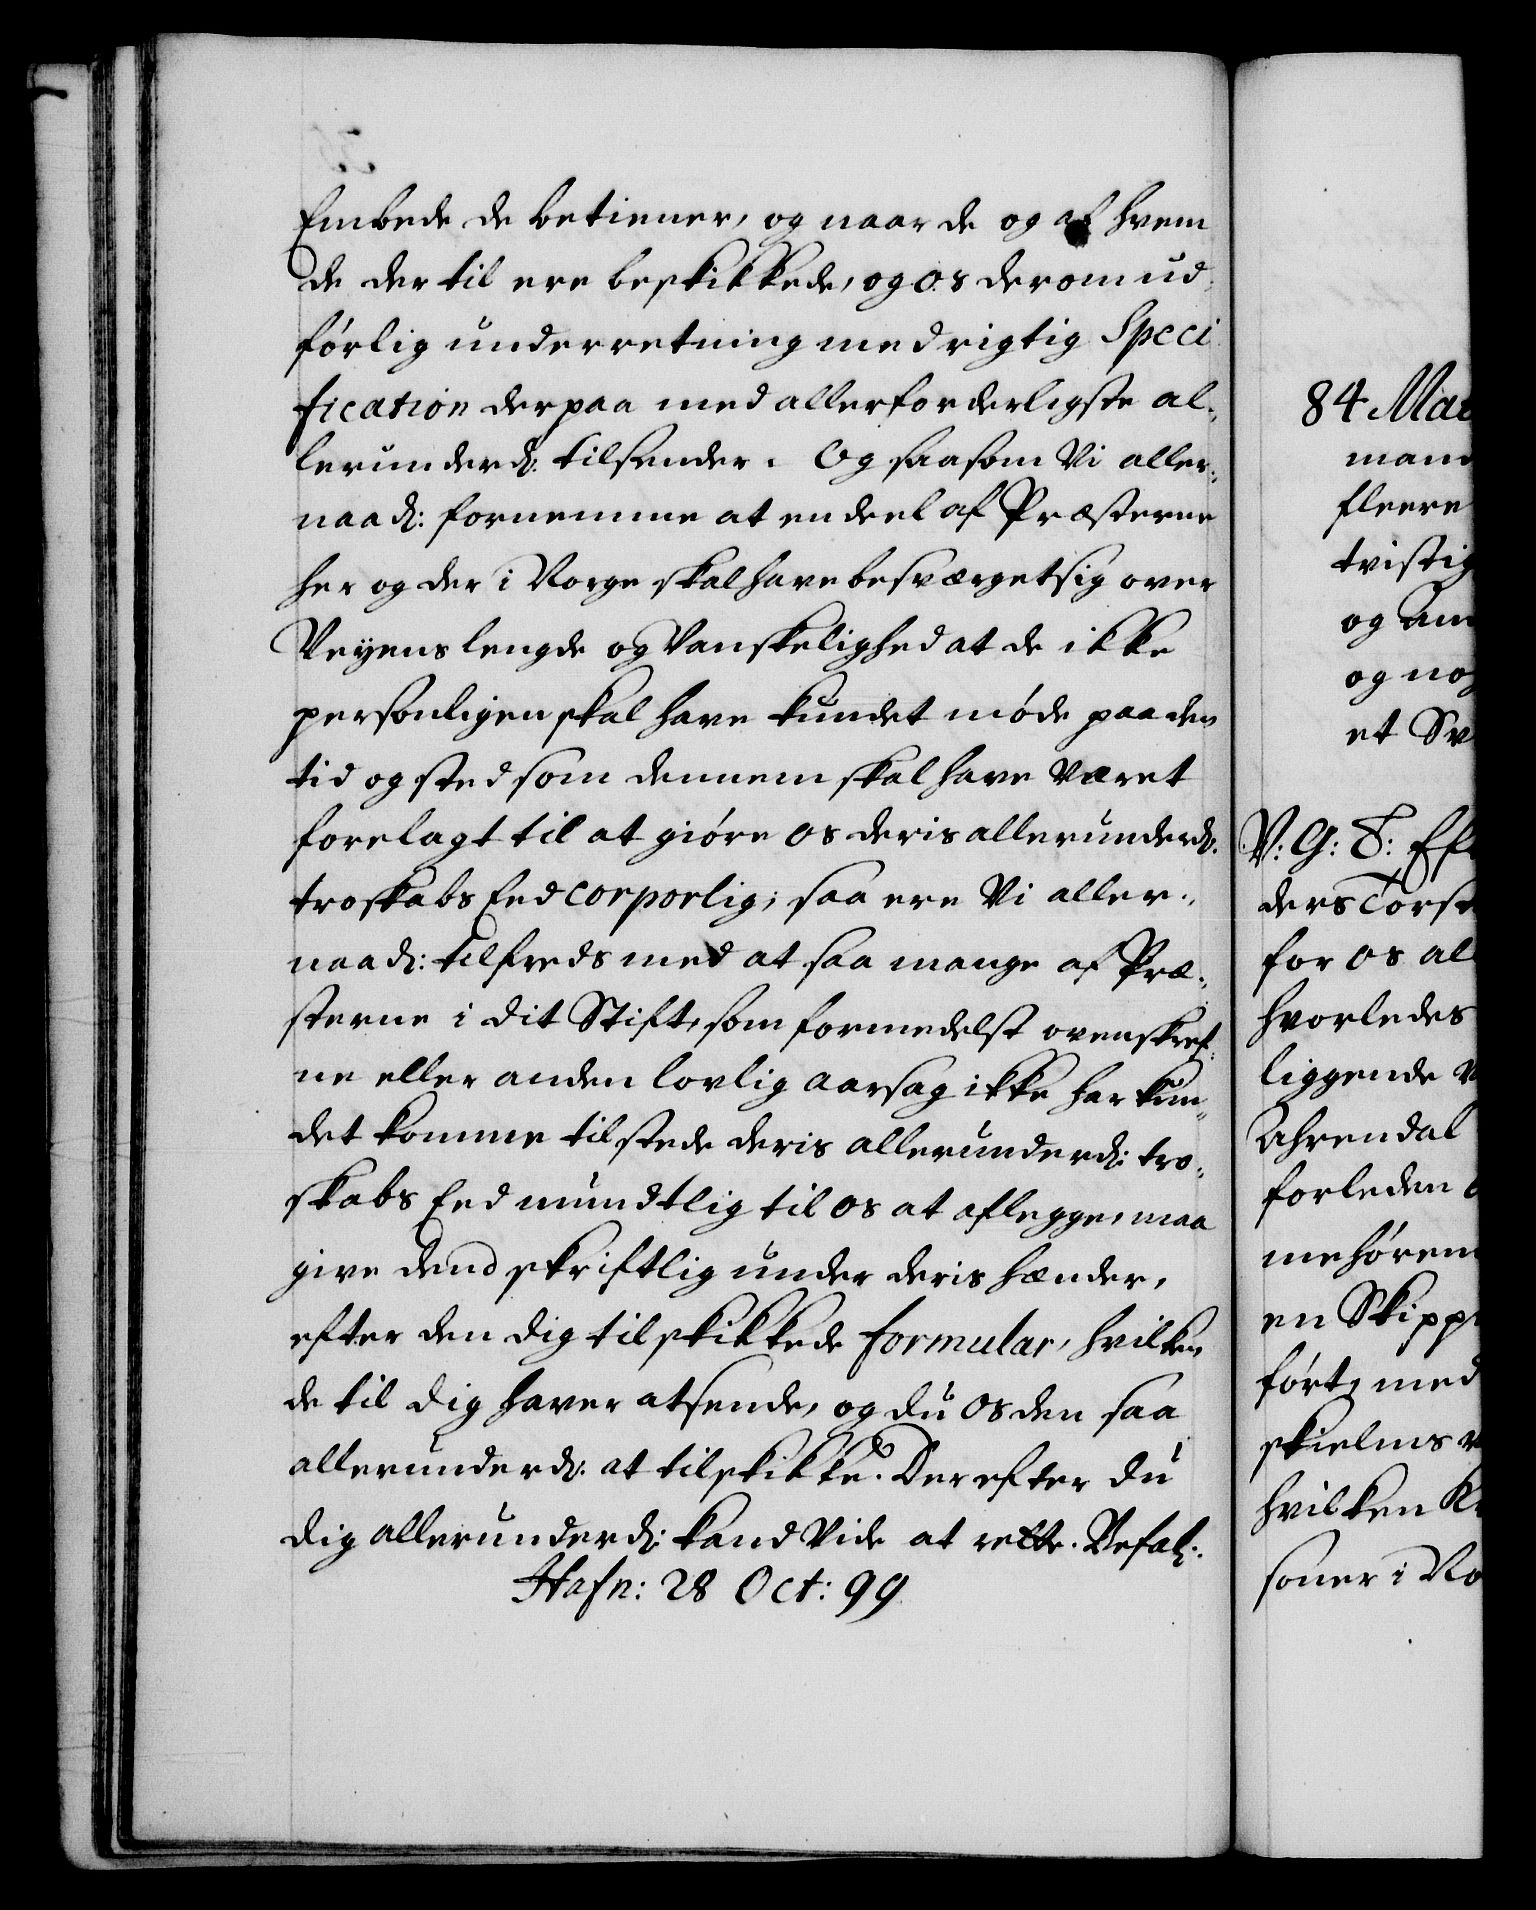 Embede de betiener, og naar de og af hvem
de der til ere beskikkede, og os derom ud-
førlig underretning med rigtig Speci
fication derpaa med allerforderligste al-
lerunderd: tilsender. Og saasom Vi aller-
naad: fornemme at endeel af Præsterne
her og der i Norge skal have besværget sig over
Veyens lengde og Vanskelighed at de ikke
personligen skal have kundet møde paa den
tid og sted som dennem skal have været
forelagt til at giøre os deris allerunderd:
troskabs Eed corporlig; saa ere Vi aller-
naad: tilfreds med at saa mange af Præ-
sterne i dit Stift, som formedelst ovenskref-
ne eller anden lovlig aarsag ikke har kun-
det komme tilstede deris allerunderd: tro-
skabs Eed mundtlig til os at aflegge, maa
give dend skriftlig under deris hænder,
efter den dig tilskikkede formular, hvilken
de til dig haver at sende, og du os den saa
allerunderd: at tilskikke. Derefter du
dig allerunderd: kand Vide at rette. Befal:
Hafn: 28 Oct: 99
84 Mar
mand
fleere
tvistig
og Am
og nog
et Sv
V: G: T: Eft
ders Torst
for os all
hvorledes
liggende v
Ahrendal
forleden
mehøren
en Skipp
ført, med
skielms
hvilken K
soner i No